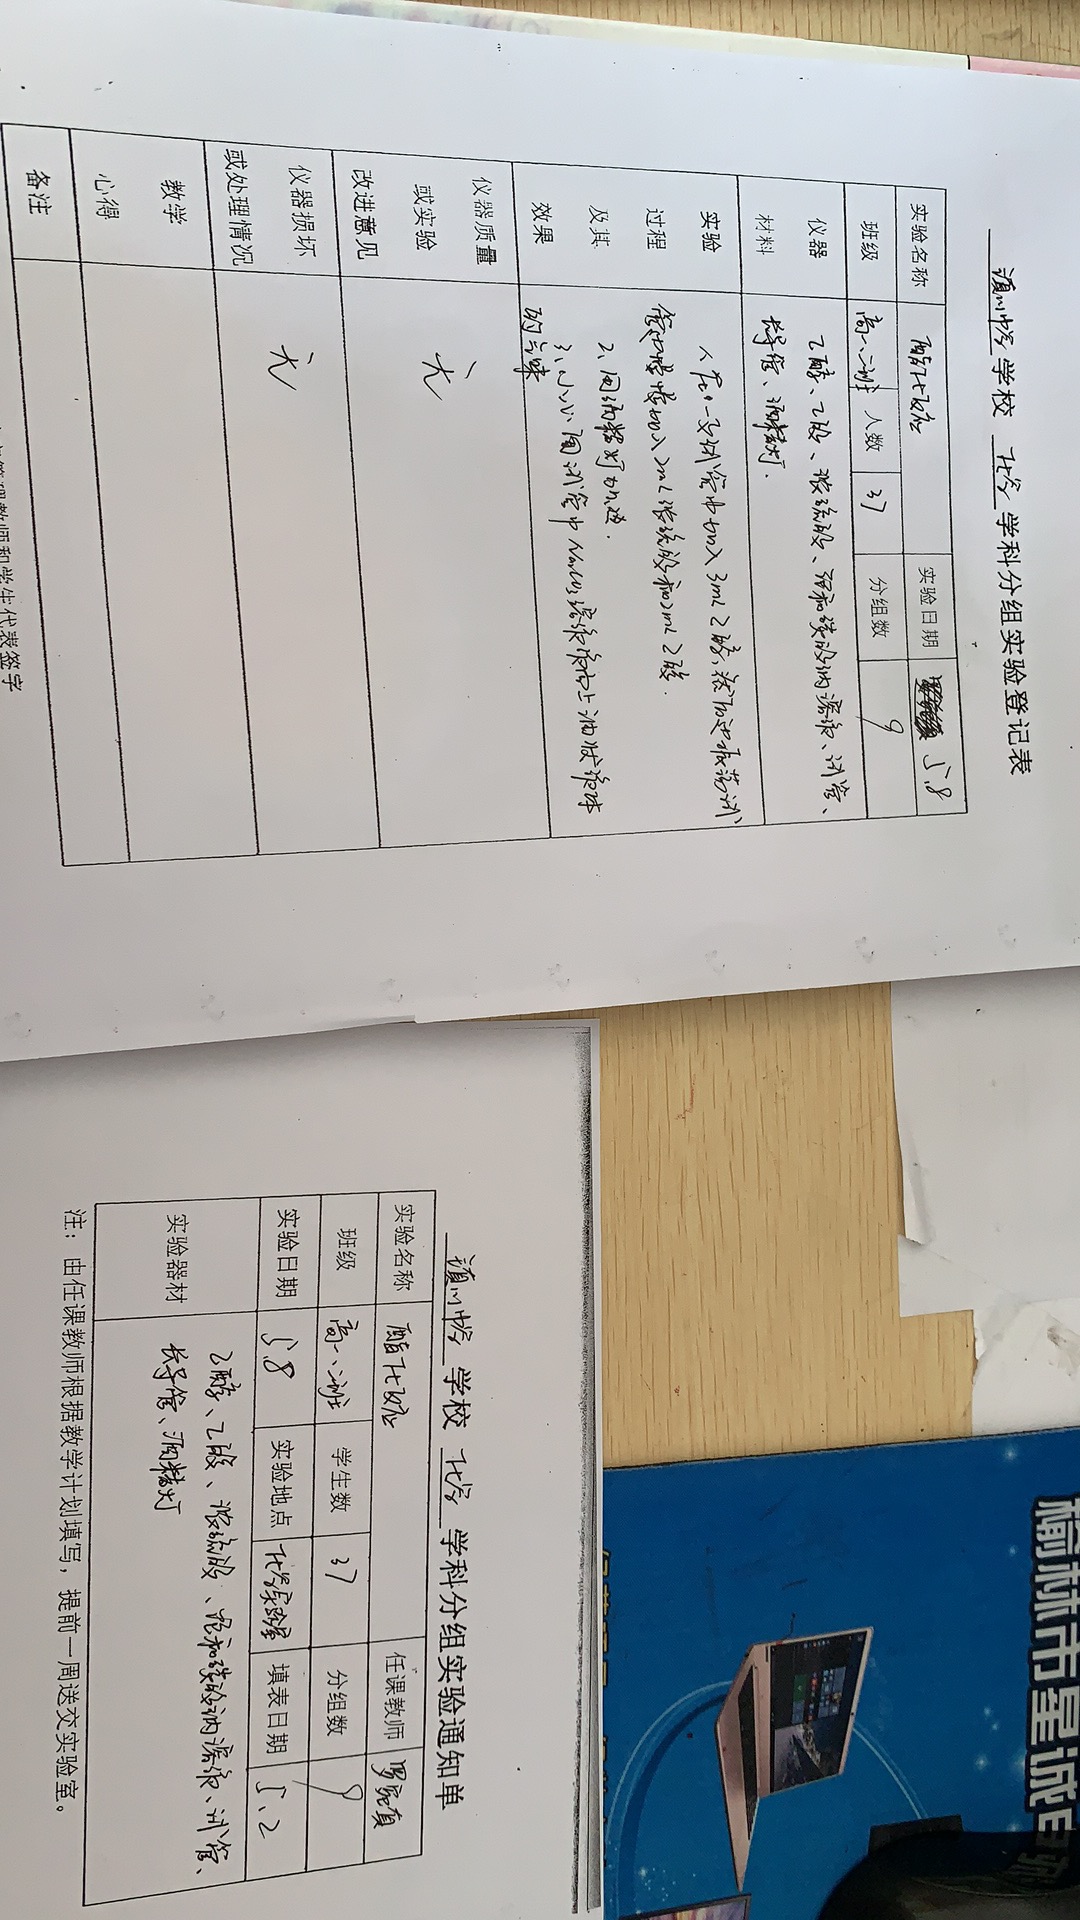 镇川中学 学校 化学 学科分组实验登记表
实验名称 酯化反应 实验日期 5.8
班级 高一、二班 人数 37 分组数 9
仪器
材料
乙醇、乙酸、浓硫酸、饱和碳酸钠溶液、试管、
长导管、酒精灯.
实验
过程
及其
效果
1、在一支试管中加入3mL乙醇，然后边振荡试
管边慢慢加入2mL浓硫酸和2mL乙酸.
2、用酒精灯加热.
3、小心闻试管中Na2CO3溶液液面上油状液体
的气味
仪器质量
或实验
改进意见
无
仪器损坏
或处理情况
无
教学
心得
备注
管理教师和学生代表签字
镇川中学 学校 化学 学科分组实验通知单
实验名称 酯化反应 任课教师
班级 高一、二班 学生数 37 分组数 9
实验日期 5.8 实验地点 化学实验室 填表日期 5.2
实验器材
乙醇、乙酸、浓硫酸、饱和碳酸钠溶液、试管、
长导管、酒精灯
注：由任课教师根据教学计划填写，提前一周送交实验室。
榆林市星诚